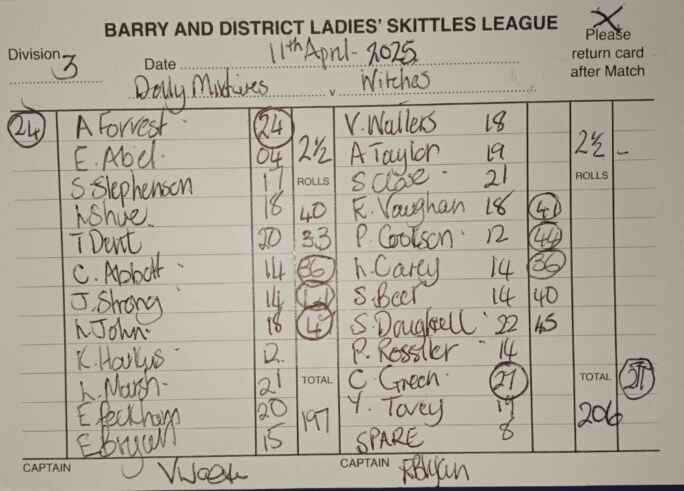 BARRY AND DISTRICT LADIES' SKITTLES LEAGUE
X
Please return card after Match
Division 3
Date 11th April - 2025
Dolly Mixtures v Witches
24 A Forrest 24 V. Wallers 18
E. Abel 04 2½ A Taylor 19 2½
S. Stephenson 17 ROLLS S Close 21 ROLLS
18 40 K. Vaughan 18 41
T Dent 20 33 P. Cootson 12 44
C. Abbott 14 36 L. Carey 14 36
J. Strong 14 41 S. Beer 14 40
L John 18 4 S. 22 45
K. 12 P. Rossiter 14
L. Marsh 21 TOTAL C. Green 27 TOTAL 27
E Peckham 20 197 Y. Tovey 19 206
E Bryan 15 SPARE 8
CAPTAIN CAPTAIN